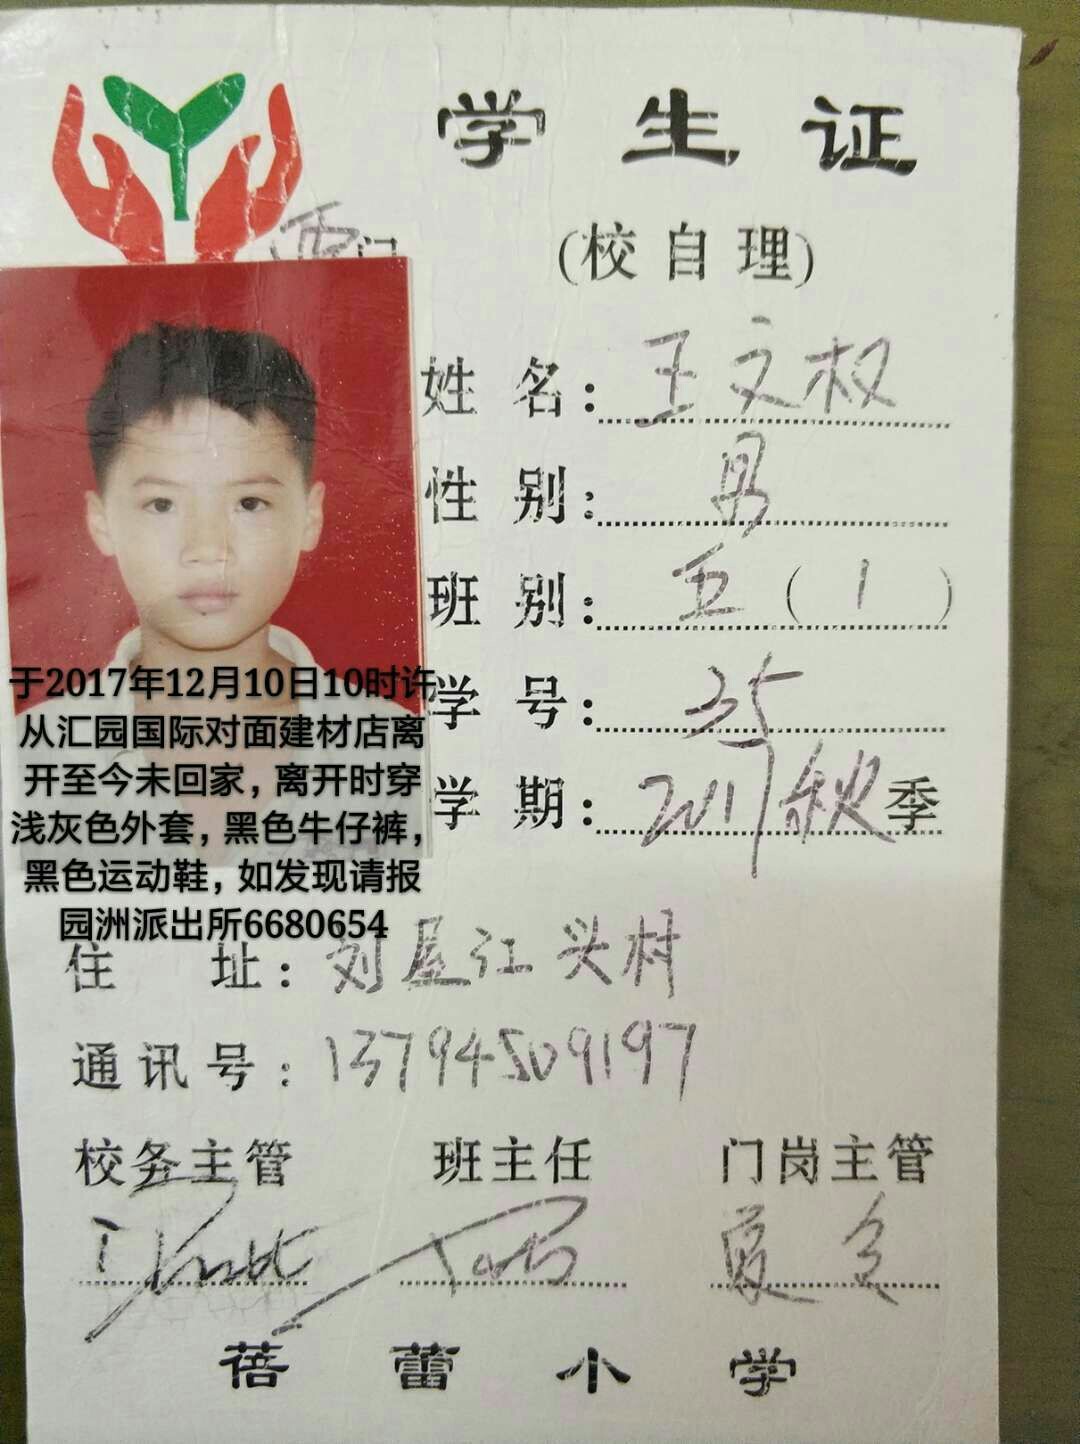 学生证
西门
(校自理)
姓名：王文权
性别：男
班别：五（1）
学号：35
学期：2017秋季
于2017年12月10日10时许
从汇园国际对面建材店离
开至今未回家，离开时穿
浅灰色外套，黑色牛仔裤，
黑色运动鞋，如发现请报
园洲派出所6680654
住址：刘屋江头村
通讯号：13794509197
校务主管 班主任 门岗主管
蓓蕾小学